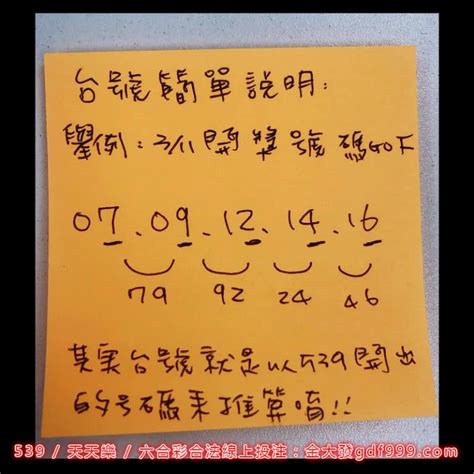 台號簡單說明:
舉例:3/11開獎號碼如下
07.09.12.14.16
79 92 24 46
其実台號就是以539開出
的号碼來推算唷!!
539 / 天天樂 / 六合彩合法線上投注:金大發gdf999.com